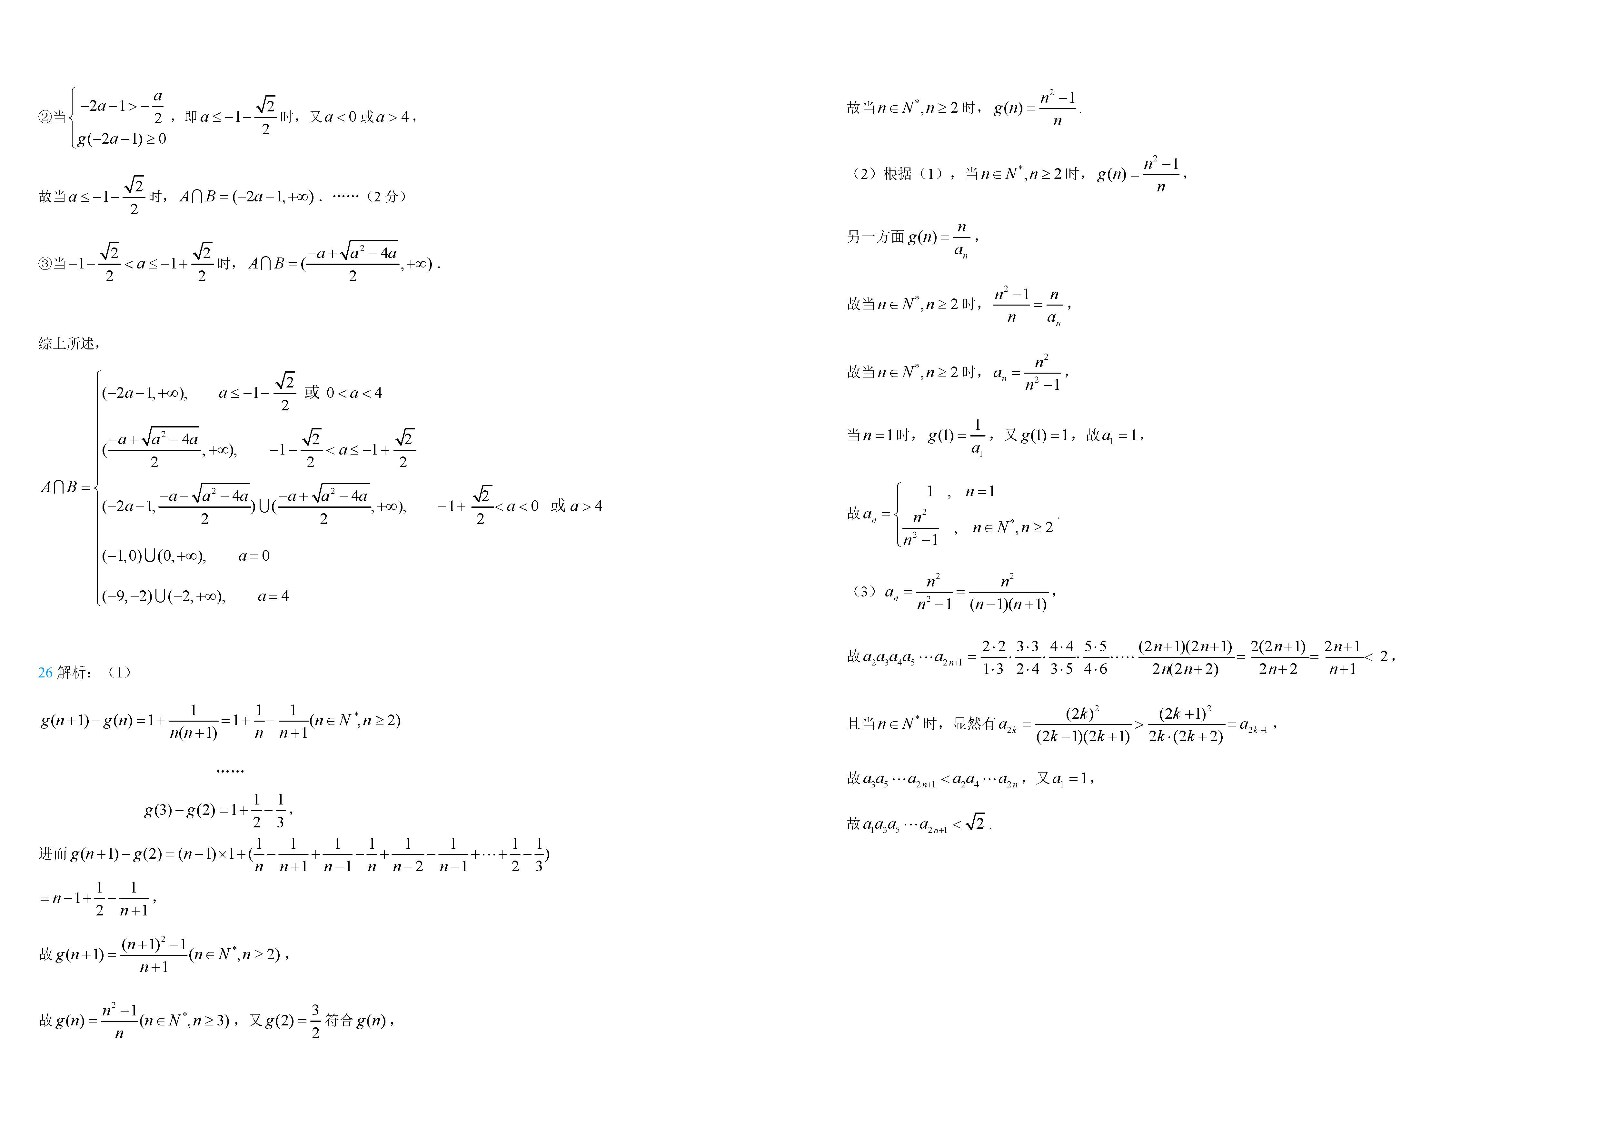 ②当{−2a−1>−a/2, g(−2a−1)≥0, 即a≤−1−√2/2时, 又a<0或a>4,
故当a≤−1−√2/2时, A⋂B=(−2a−1,+∞). ……(2分)
③当−1−√2/2<a≤−1+√2/2时, A⋂B=((−a+√(a²−4a))/2,+∞).
综上所述,
A⋂B={
(−2a−1,+∞), a≤−1−√2/2 或 0<a<4
((−a+√(a²−4a))/2,+∞), −1−√2/2<a≤−1+√2/2
(−2a−1,(−a−√(a²−4a))/2)⋃((−a+√(a²−4a))/2,+∞), −1+√2/2<a<0 或a>4
(−1,0)⋃(0,+∞), a=0
(−9,−2)⋃(−2,+∞), a=4
26解析:(1)
g(n+1)−g(n)=1+1/(n(n+1))=1+1/n−1/(n+1)(n∈N*,n≥2)
……
g(3)−g(2)=1+1/2−1/3,
进而g(n+1)−g(2)=(n−1)×1+(1/n−1/(n+1)+1/(n−1)−1/n+1/(n−2)−1/(n−1)+⋯+1/2−1/3)
=n−1+1/2−1/(n+1),
故g(n+1)=((n+1)²−1)/(n+1)(n∈N*,n≥2),
故g(n)=(n²−1)/n(n∈N*,n≥3), 又g(2)=3/2符合g(n),
故当n∈N*,n≥2时, g(n)=(n²−1)/n.
(2)根据(1), 当n∈N*,n≥2时, g(n)=(n²−1)/n,
另一方面g(n)=n/aₙ,
故当n∈N*,n≥2时, (n²−1)/n=n/aₙ,
故当n∈N*,n≥2时, aₙ=n²/(n²−1),
当n=1时, g(1)=1/a₁, 又g(1)=1, 故a₁=1,
故aₙ={1, n=1
n²/(n²−1), n∈N*,n≥2.
(3)aₙ=n²/(n²−1)=n²/((n−1)(n+1)),
故a₂a₃a₄a₅⋯a₂ₙ₊₁=(2·2)/(1·3)·(3·3)/(2·4)·(4·4)/(3·5)·(5·5)/(4·6)·⋯·((2n+1)(2n+1))/(2n(2n+2))=2(2n+1)/(2n+2)=(2n+1)/(n+1)<2,
且当n∈N*时, 显然有a₂ₖ=(2k)²/((2k−1)(2k+1))>(2k+1)²/(2k·(2k+2))=a₂ₖ₊₁,
故a₃a₅⋯a₂ₙ₊₁<a₂a₄⋯a₂ₙ, 又a₁=1,
故a₁a₃a₅⋯a₂ₙ₊₁<√2.